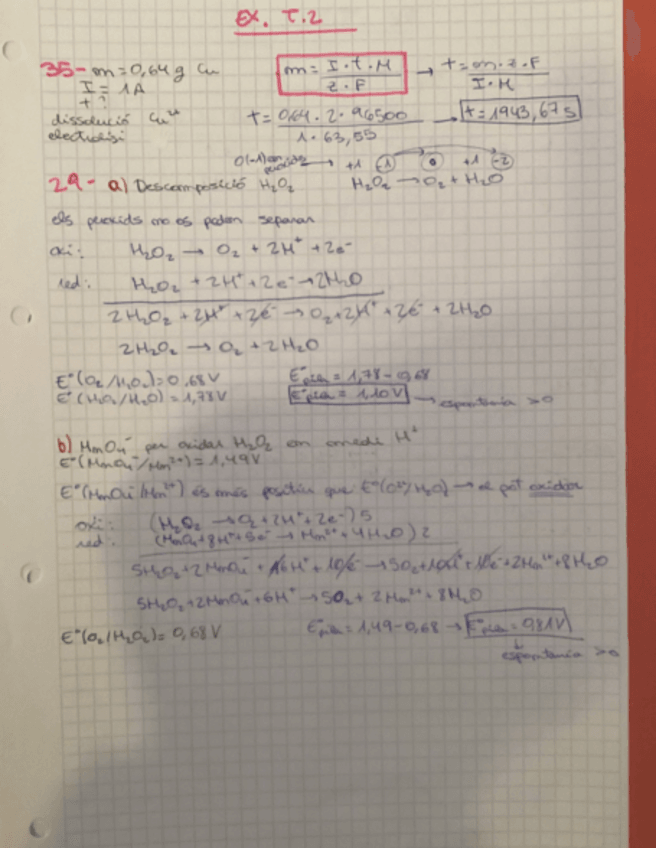 EX. T.2
35- m = 0,64 g Cu
I = 1A
t?
dissolució Cu²⁺
electrolisi
m = I·t·M / z·F → t = m·z·F / I·M
t = 0,64 · 2 · 96500 / 1 · 63,55 → t = 1943,67 s
O(-1) en peròxids → +1 -1 0 +1 -2
29- a) Descomposició H₂O₂ H₂O₂ → O₂ + H₂O
els peròxids no es poden separar
oxi: H₂O₂ → O₂ + 2H⁺ + 2e⁻
red: H₂O₂ + 2H⁺ + 2e⁻ → 2H₂O
2H₂O₂ + 2H⁺ + 2e⁻ → O₂ + 2H⁺ + 2e⁻ + 2H₂O
2H₂O₂ → O₂ + 2H₂O
E°(O₂/H₂O₂) = 0,68 V E°pila = 1,78 - 0,68
E°(H₂O₂/H₂O) = 1,78 V E°pila = 1,10 V → espontània >0
b) MnO₄⁻ per oxidar H₂O₂ en medi H⁺
E°(MnO₄⁻/Mn²⁺) = 1,49 V
E°(MnO₄⁻/Mn²⁺) és més positiu que → pot oxidar
oxi: (H₂O₂ → O₂ + 2H⁺ + 2e⁻) 5
red: (MnO₄⁻ + 8H⁺ + 5e⁻ → Mn²⁺ + 4H₂O) 2
5H₂O₂ + 2MnO₄⁻ + 16H⁺ + 10e⁻ → 5O₂ + 10H⁺ + 10e⁻ + 2Mn²⁺ + 8H₂O
5H₂O₂ + 2MnO₄⁻ + 6H⁺ → 5O₂ + 2Mn²⁺ + 8H₂O
E°(O₂/H₂O₂) = 0,68 V E°pila = 1,49 - 0,68 → E°pila = 0,81V
espontània >0